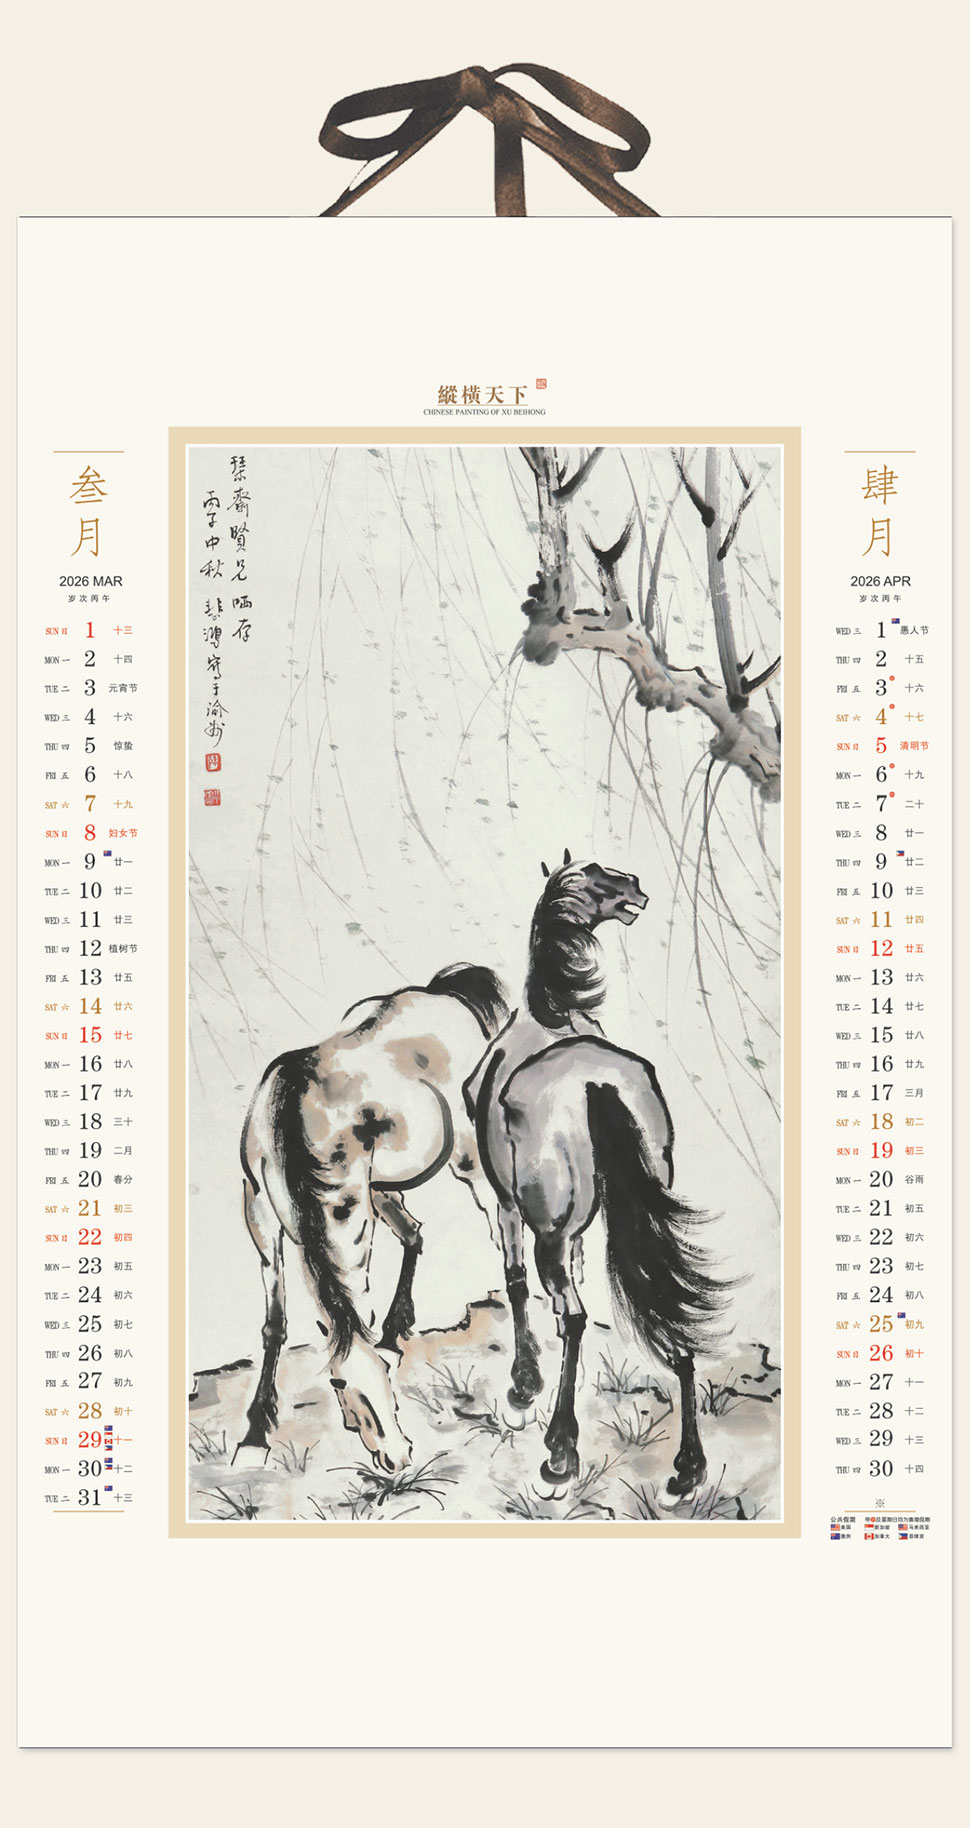 縱橫天下
CHINESE PAINTING OF XU BEIHONG
叁月
2026 MAR
岁次丙午
SUN 日 1 十三
MON 一 2 十四
TUE 二 3 元宵节
WED 三 4 十六
THU 四 5 惊蛰
FRI 五 6 十八
SAT 六 7 十九
SUN 日 8 妇女节
MON 一 9 廿一
TUE 二 10 廿二
WED 三 11 廿三
THU 四 12 植树节
FRI 五 13 廿五
SAT 六 14 廿六
SUN 日 15 廿七
MON 一 16 廿八
TUE 二 17 廿九
WED 三 18 三十
THU 四 19 二月
FRI 五 20 春分
SAT 六 21 初三
SUN 日 22 初四
MON 一 23 初五
TUE 二 24 初六
WED 三 25 初七
THU 四 26 初八
FRI 五 27 初九
SAT 六 28 初十
SUN 日 29 十一
MON 一 30 十二
TUE 二 31 十三
琹齋賢兄哂存
丙子中秋 悲鴻寫于渝州
肆月
2026 APR
岁次丙午
WED 三 1 愚人节
THU 四 2 十五
FRI 五 3 十六
SAT 六 4 十七
SUN 日 5 清明节
MON 一 6 十九
TUE 二 7 二十
WED 三 8 廿一
THU 四 9 廿二
FRI 五 10 廿三
SAT 六 11 廿四
SUN 日 12 廿五
MON 一 13 廿六
TUE 二 14 廿七
WED 三 15 廿八
THU 四 16 廿九
FRI 五 17 三月
SAT 六 18 初二
SUN 日 19 初三
MON 一 20 谷雨
TUE 二 21 初五
WED 三 22 初六
THU 四 23 初七
FRI 五 24 初八
SAT 六 25 初九
SUN 日 26 初十
MON 一 27 十一
TUE 二 28 十二
WED 三 29 十三
THU 四 30 十四
※
公共假期
美国 新加坡 马来西亚
澳州 加拿大 菲律宾